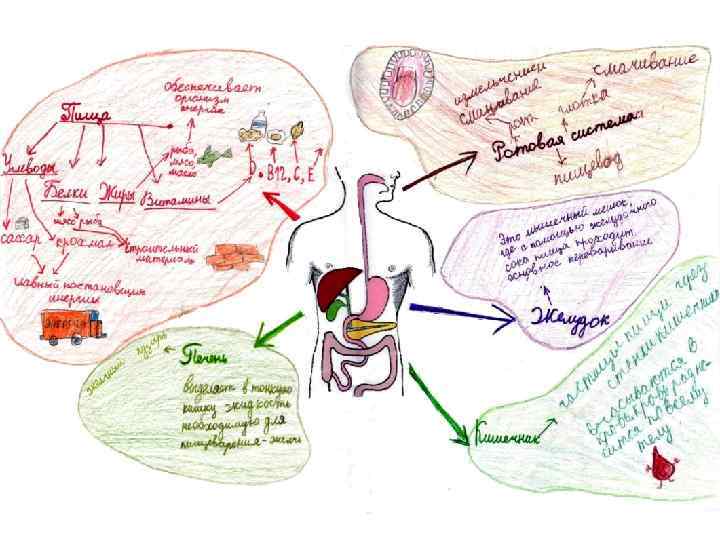 обеспечивает
организм
энергия
Пища
рыба,
мясо,
масло
Углеводы
Белки Жиры Витамины
D. B12, C, E
мясо рыба
сахар крахмал
строительный
материал
главный поставщик
энергии
ЭНЕРГИЯ
измельчением
смачивание
смачивание
рот
глотка
Ротовая система
пищевод
Это мышечный мешок,
где с помощью желудочного
сока пища проходит
основное переваривание
Желудок
желчный пузырь
Печень
выделяет в тонкую
кишку жидкость
необходимую для
пищеварения - желчь
Кишечник
частицы пищи через
стенки кишечника
всасываются в
кровь
по всему
телу